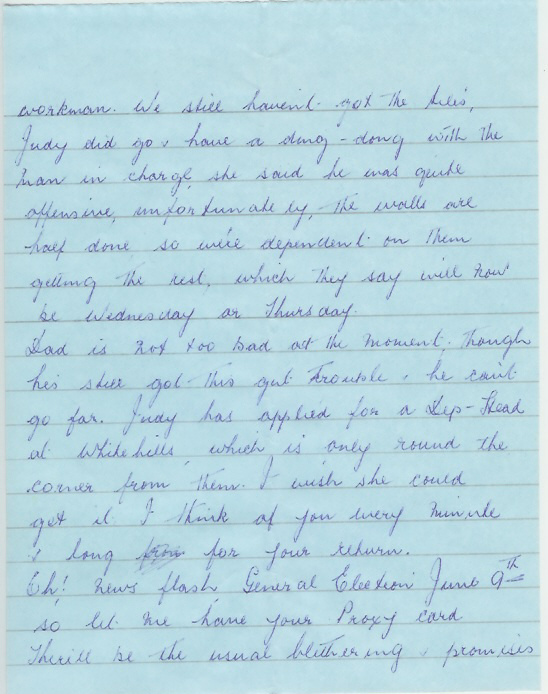 workman. We still haven't got the tiles,
Judy did go & have a ding-dong with the
man in charge, she said he was quite
offensive, unfortunately, the walls are
half done so we're dependent on them
getting the rest, which they say will now
be Wednesday or Thursday.
Dad is not too bad at the moment. Though
he's still got this gut trouble & he can't
go far. Judy has applied for a Dep-Head
at Whitehills, which is only round the
corner from them. I wish she could
get it. I think of you every minute
& long from for your return.
Eh! News flash General Election June 9TH
so let me have your Proxy card
There'll be the usual blithering & promises